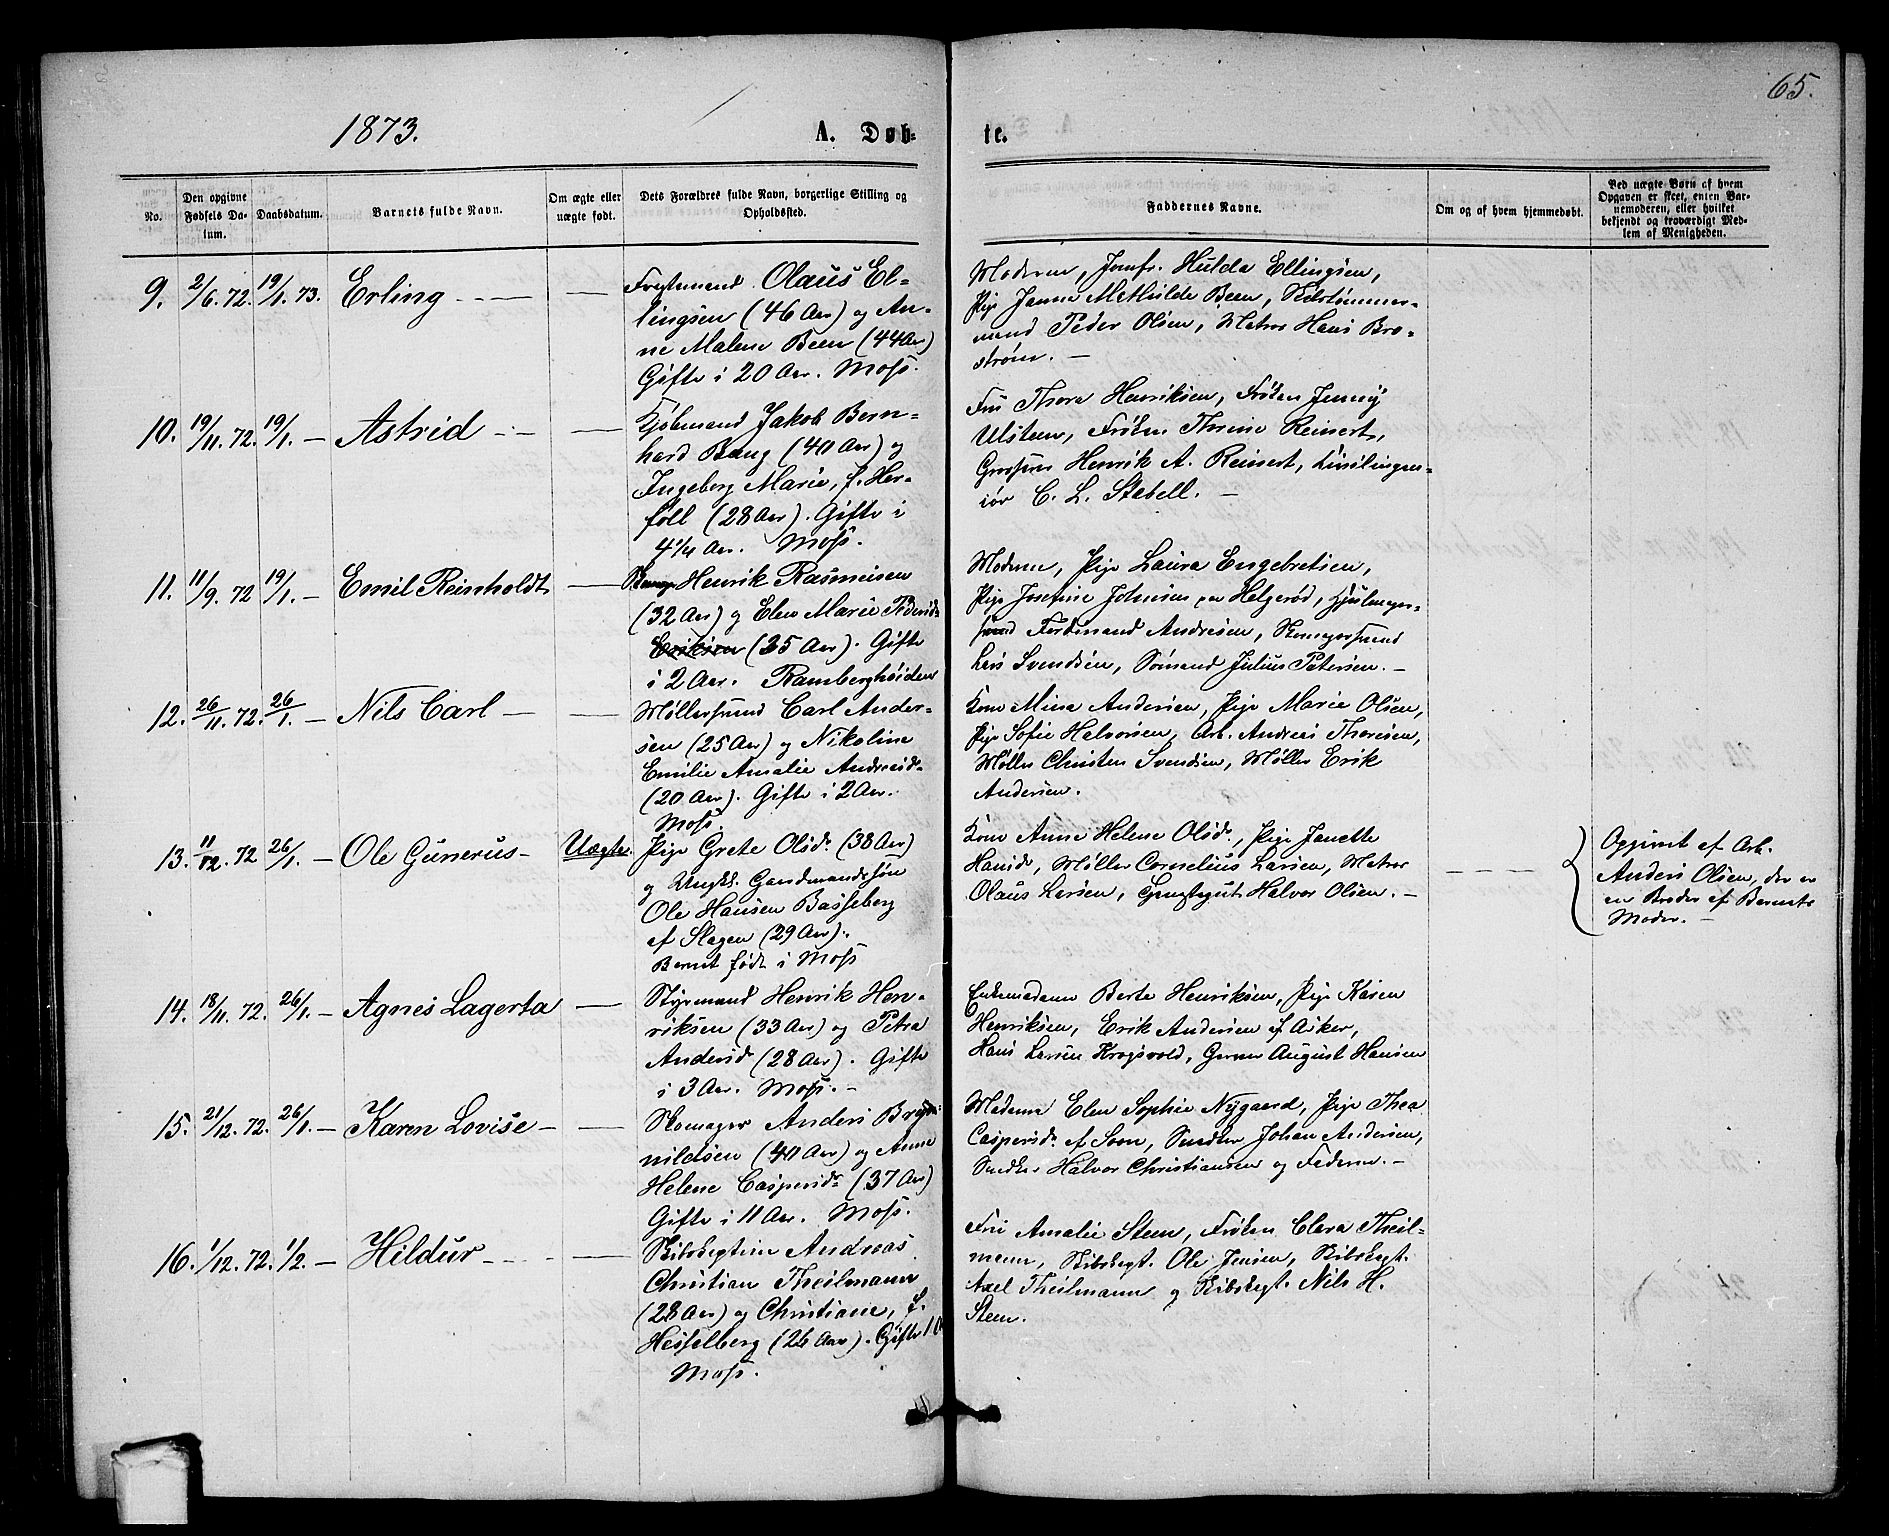 65.
1873.
A. Døb-
te.
No.
Den opgivne Fødsels Da-
tum.
Daabsdatum.
Barnets fulde Navn.
Om ægte eller
uægte født.
Dets Forældres fulde Navn, borgerlige Stilling og
Opholdssted.
Faddernes Navne.
Om og af hvem hjemmedøbt.
Ved uægte Børn af hvem
Opgaven er skeet, enten Bar-
nemoderen, eller hvilket
bekjendt og troværdigt Med-
lem af Menigheden.
9. 2/6. 72. 19/1. 73. Erling
Olaus El-
lingsen (46 Aar) og An-
ne Malene Been (44 Aar)
Gifte i 20 Aar. Moss.
Moderen, Jomfr. Hulda Ellingsen,
Pige Janna Mathilde Been, Skibstømmer-
mand Peder Olsen, Matros Hans Bro-
strøm. —
10. 19/11. 72. 19/1. — Astrid
Kjøbmand Jakob Bern-
hard Bang (40 Aar) og
Ingeborg Marie, f. Her-
föll (28 Aar). Gifte i
4 1/4 Aar. Moss.
Fru Thora Henriksen, Frøken Jenny
Ulsteen, Frøken Thrine Reinert,
Grosserer Henrik A. Reinert, Civilingen-
iør C. L. Stabell. —
11. 11/9. 72 19/1. — Emil Reinholdt
Henrik Rasmusen
(32 Aar) og Elen Marie Pedersd.
Eriksen (35 Aar). Gifte
i 2 Aar. Ramberghøiden
Moderen, Pige Laura Engebretsen,
Pige Josefine Johnsen paa Helgerød, Hjulmager-
svend Ferdinand Andresen, Skomagersvend
Lars Svendsen, Sømand Julius Petersen. —
12. 26/11. 72. 26/1. — Nils Carl —
Møllersvend Carl Ander-
sen (25 Aar) og Nikoline
Emilie Amalie Andreasd.
(20 Aar). Gifte i 2 Aar.
Moss.
Kone Mina Andersen, Pige Marie Olsen,
Pige Sofie Halvorsen, Arb. Andreas Thoresen,
Møller Christen Svendsen, Møller Erik
Andersen.
13. 11/12. 72 26/1. — Ole Gunerus — Uægte.
Pige Grete Olsd. (38 Aar)
og Ungk. Gaardmandssøn
Ole Hansen Basseberg
af Slagen (29 Aar).
Barnet født i Moss
Kone Anne Helene Olsd., Pige Janette
Hansd., Møller Cornelius Larsen, Matros
Olaus Larsen, Halvor Olsen. —
Opgivet af Arb.
Anders Olsen, der er
en Broder af Barnets
Moder. —
14. 18/11. 72. 26/1. — Agnes Lagerta —
Styrmand Henrik Hen-
riksen (33 Aar) og Petra
Andersd. (28 Aar). Gifte
i 3 Aar. Moss. —
Enkemadam Berte Henriksen, Pige Karen
Henriksen, Erik Andersen af Asker,
Hans Larsen Krogsvold, Garver August Hansen
15. 21/12. 72. 26/1. — Karen Lovise —
Skomager Anders Bryn-
nildsen (40 Aar) og Anne
Helene Caspersd. (37 Aar)
Gifte i 11 Aar. Moss.
Madame Elen Sophie Nygaard, Pige Thea
Caspersd. af Soon, Snedker Johan Andersen,
Snedker Halvor Christiansen og Faderen. —
16. 1/12. 72. 1/2. — Hildur —
Skibskaptein Andreas
Christian Theilmann
(28 Aar) og Christiane, f.
Hesselberg (26 Aar). Gifte 1 Aar
Moss.
Fru Amalie Steen, Frøken Clara Theil-
mann, Skibskapt. Ole Jensen, Skibskapt.
Axel Theilmann og Skibskapt. Nils H.
Steen.